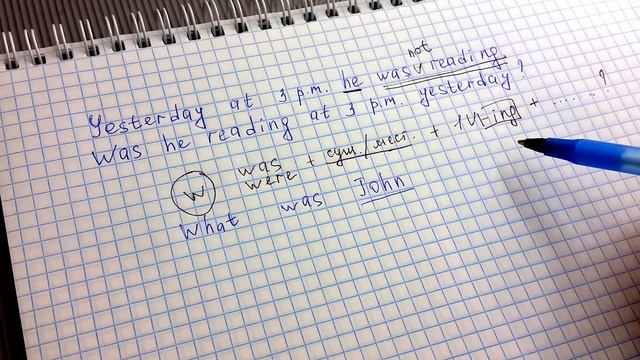 Yesterday at 3 p.m. he was not reading.
Was he reading at 3 p.m. yesterday?
W was were + сущ./мест. + V1-ing + ......?
What was John